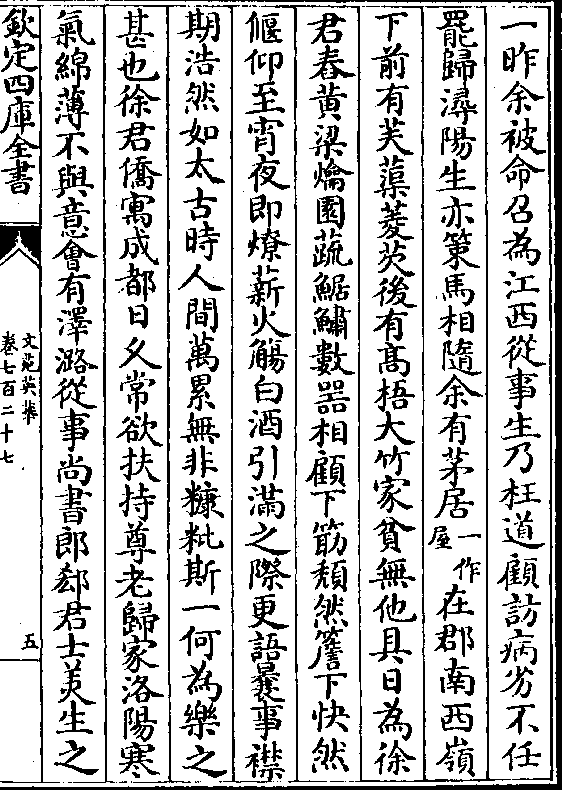 一昨余被命召為江西從事生乃枉道顧訪病劣不任
罷歸潯陽生亦策馬相隨余有茅居一作屋在郡南西嶺
下前有芙蕖菱芡後有高梧大竹家貧無他具日為徐
君舂黄粱爚園蔬鯷鱐數器相顧下筯頽然簷下快然
偃仰至宵夜即燎薪火觴白酒引滿之際更語曩事襟
期浩然如太古時人間萬累無非糠粃斯一何為樂之
甚也徐君僑寓成都日久常欲扶持尊老歸家洛陽寒
氣綿薄不與意會有澤潞從事尚書郎郄君士美生之
欽定四庫全書
文苑英華
卷七百二十七
五